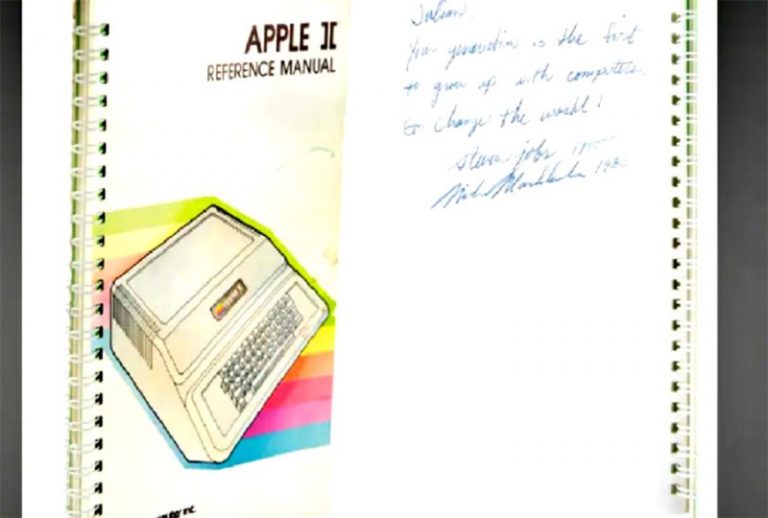 APPLE ][
REFERENCE MANUAL
Julian.
Your generation is the first
to grow up with computers.
Go change the world!
steven jobs 1980
Mike Markkula 1980
Inc.